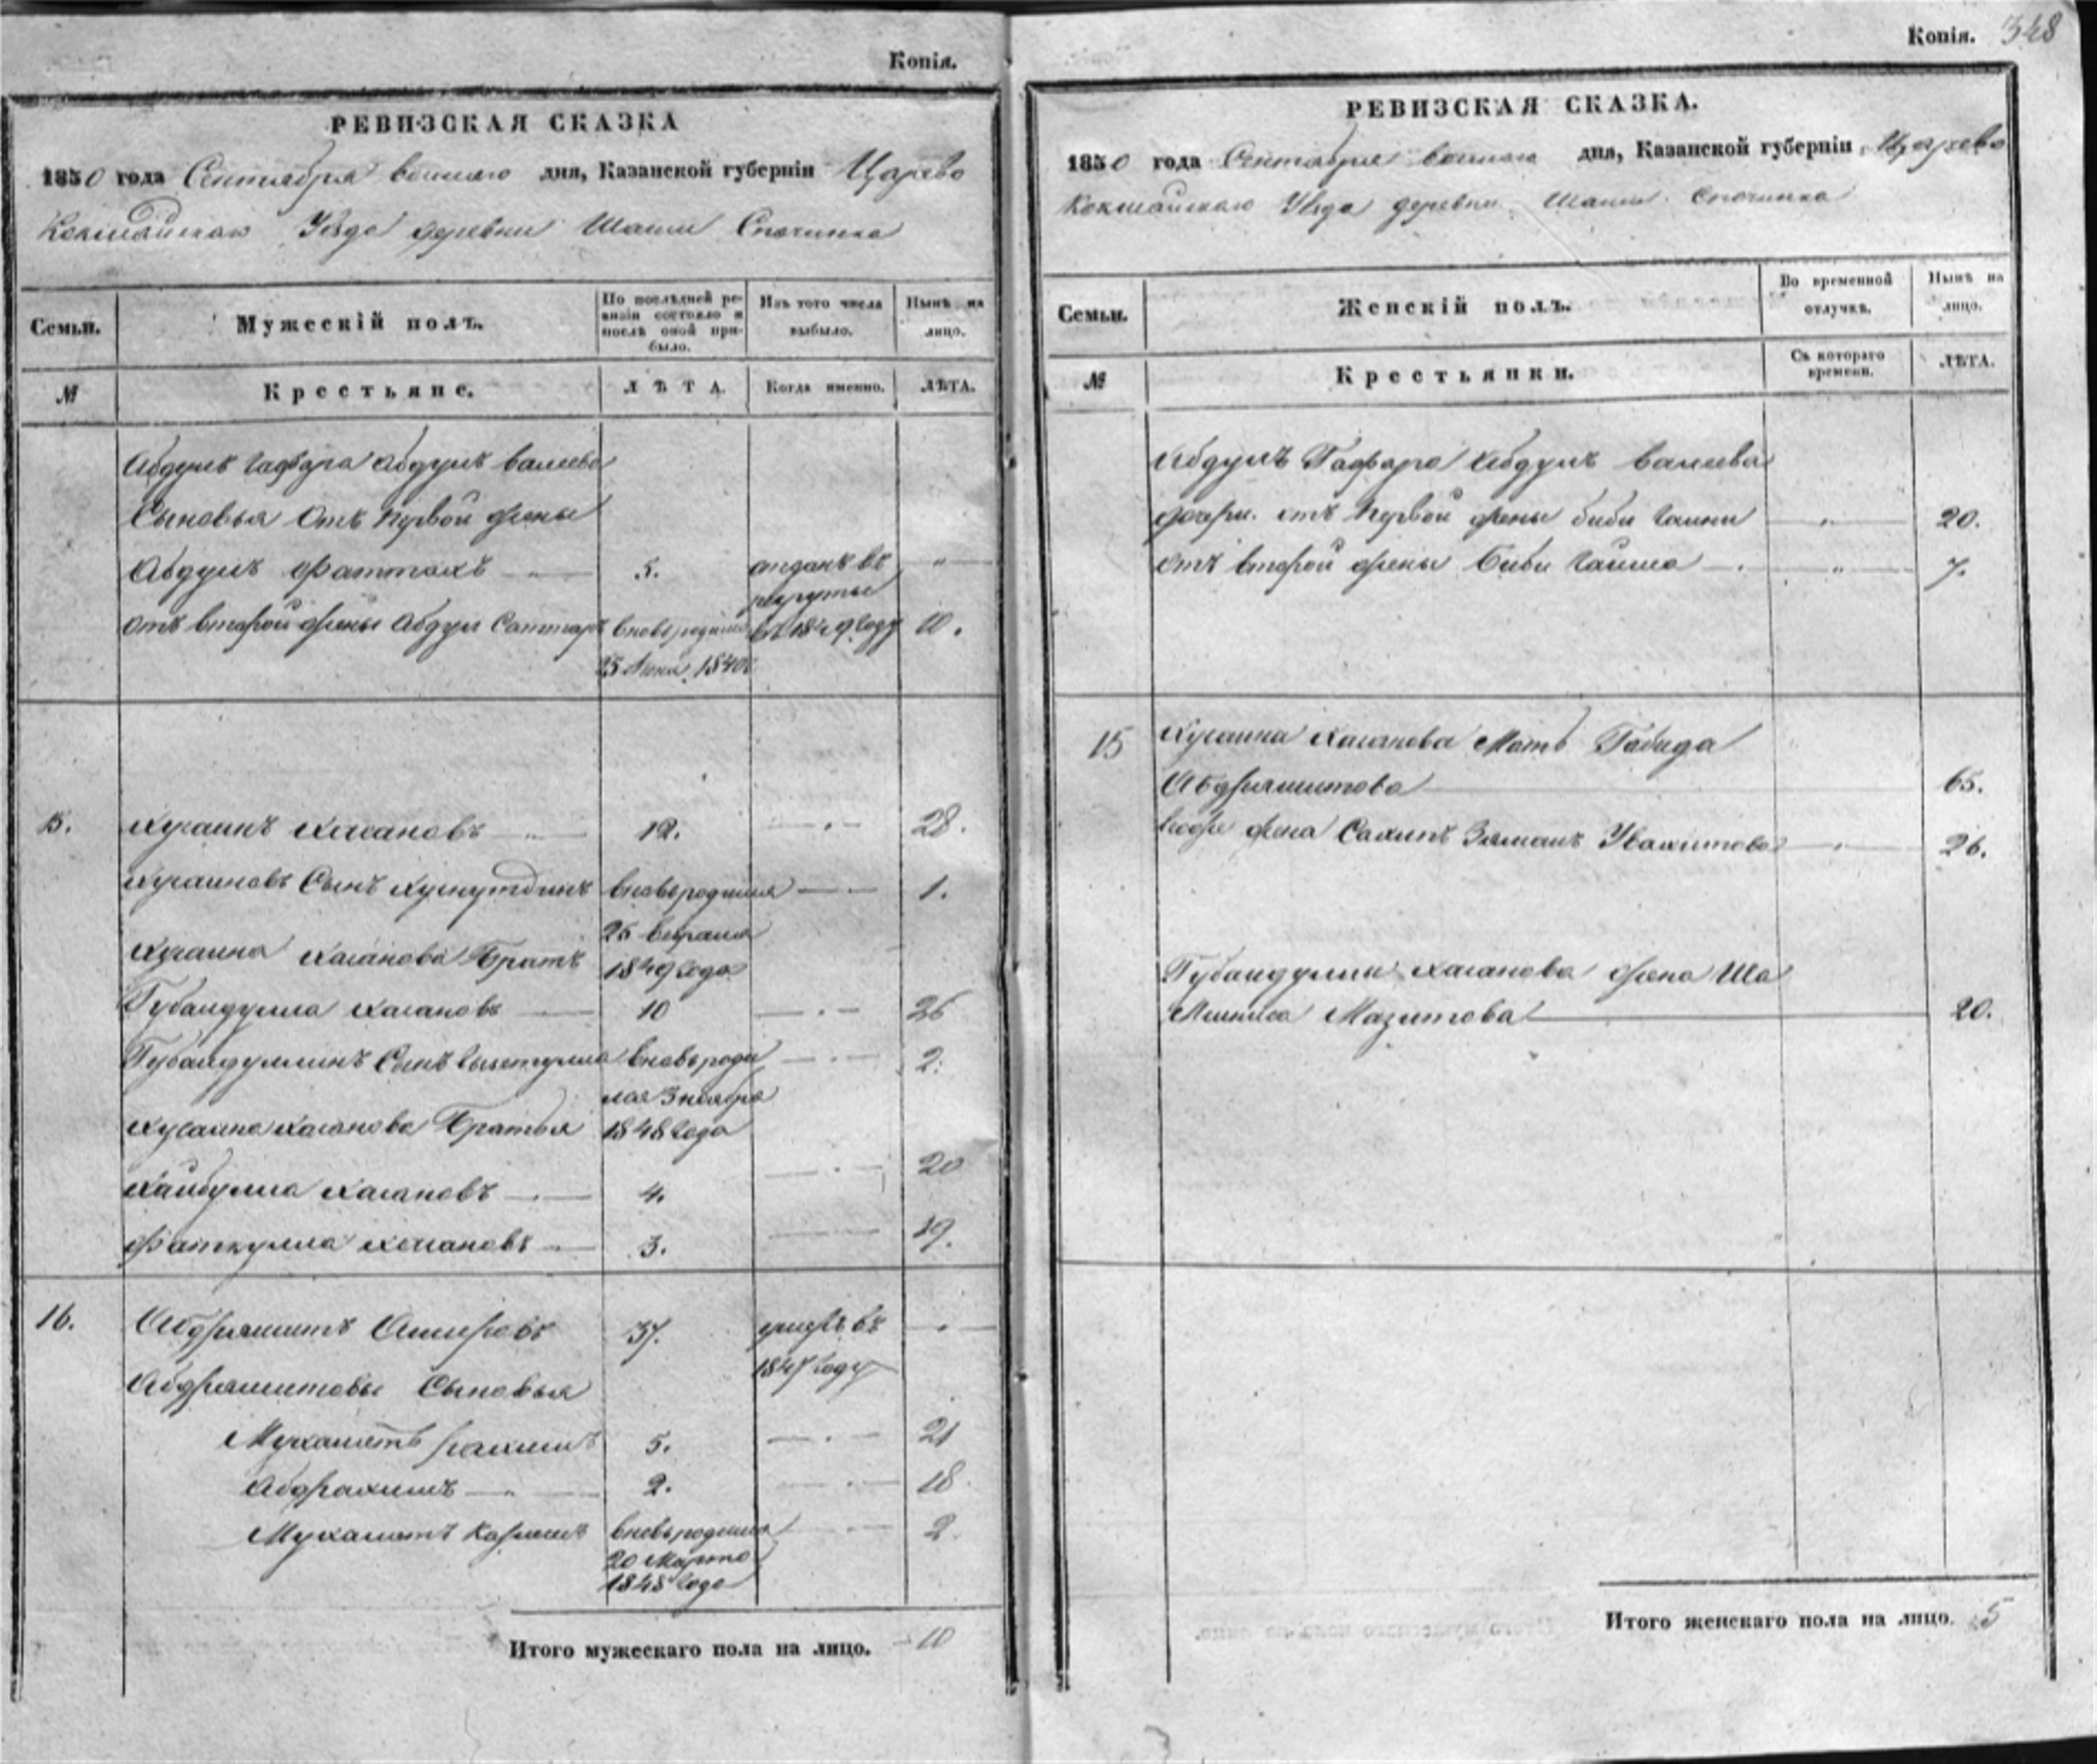 Копія.
РЕВИЗСКАЯ СКАЗКА
1850 года Сентября дня, Казанской губерніи Царево
Кокшайскаго Уѣзда деревни Шаши
Семьи.
Мужескій полъ.
По послѣдней ре-
визіи состояло и
послѣ оной при-
было.
Изъ того числа
выбыло.
Нынѣ на
лицо.
№
Крестьяне.
ЛѢТА.
Когда именно.
ЛѢТА.
Абдулъ Гафара Абдулъ Валеева
Сыновья Отъ первой жены
Абдулъ Фаттахъ 5. отданъ въ "
рекруты
отъ второй жены Абдул Саттаръ вновь родился въ 1849 году 10.
1840
15. Хусаинъ Хасановъ " 12. 28.
Хусаиновъ Сынъ Хуснутдинъ вновь родился 1.
26 Февраля
Хусаина Хасанова Братъ 1849 года
Губайдулла Хасановъ 10 26
Губайдуллинъ Сынъ вновь роди 2.
лся 3 ноября
Хусаина Хасанова Братья 1848 года
Хайбулла Хасановъ 4. 20
Фаткулла Хасановъ 3. 19.
16. Абдряшитъ Амировъ 37. умеръ въ
1847 году
Абдряшитовы Сыновья
Мухаметъ Рахимъ 5. 21
Абдрахимъ 2. 18
Мухаметъ Каримъ вновь родился 2.
20 Марта
1848 года
Итого мужескаго пола на лицо. 10
Копія. 348
РЕВИЗСКАЯ СКАЗКА.
1850 года Сентября дня, Казанской губерніи Царево
Кокшайскаго Уѣзда деревни Шаши
Семьи.
Женскій полъ.
Во временной
отлучкѣ.
Нынѣ на
лицо.
№
Крестьянки.
Съ котораго
времени.
ЛѢТА.
Абдулъ Гафара Абдулъ Валеева
дочери отъ Первой жены Биби " 20.
отъ второй жены Биби " 7.
15 Хусаина Хасанова Мать Габида
Абдряшитова 65.
его же жена Зямалъ 26.
Губайдуллы Хасанова жена Ша
Мазитова 20.
Итого женскаго пола на лицо. 5